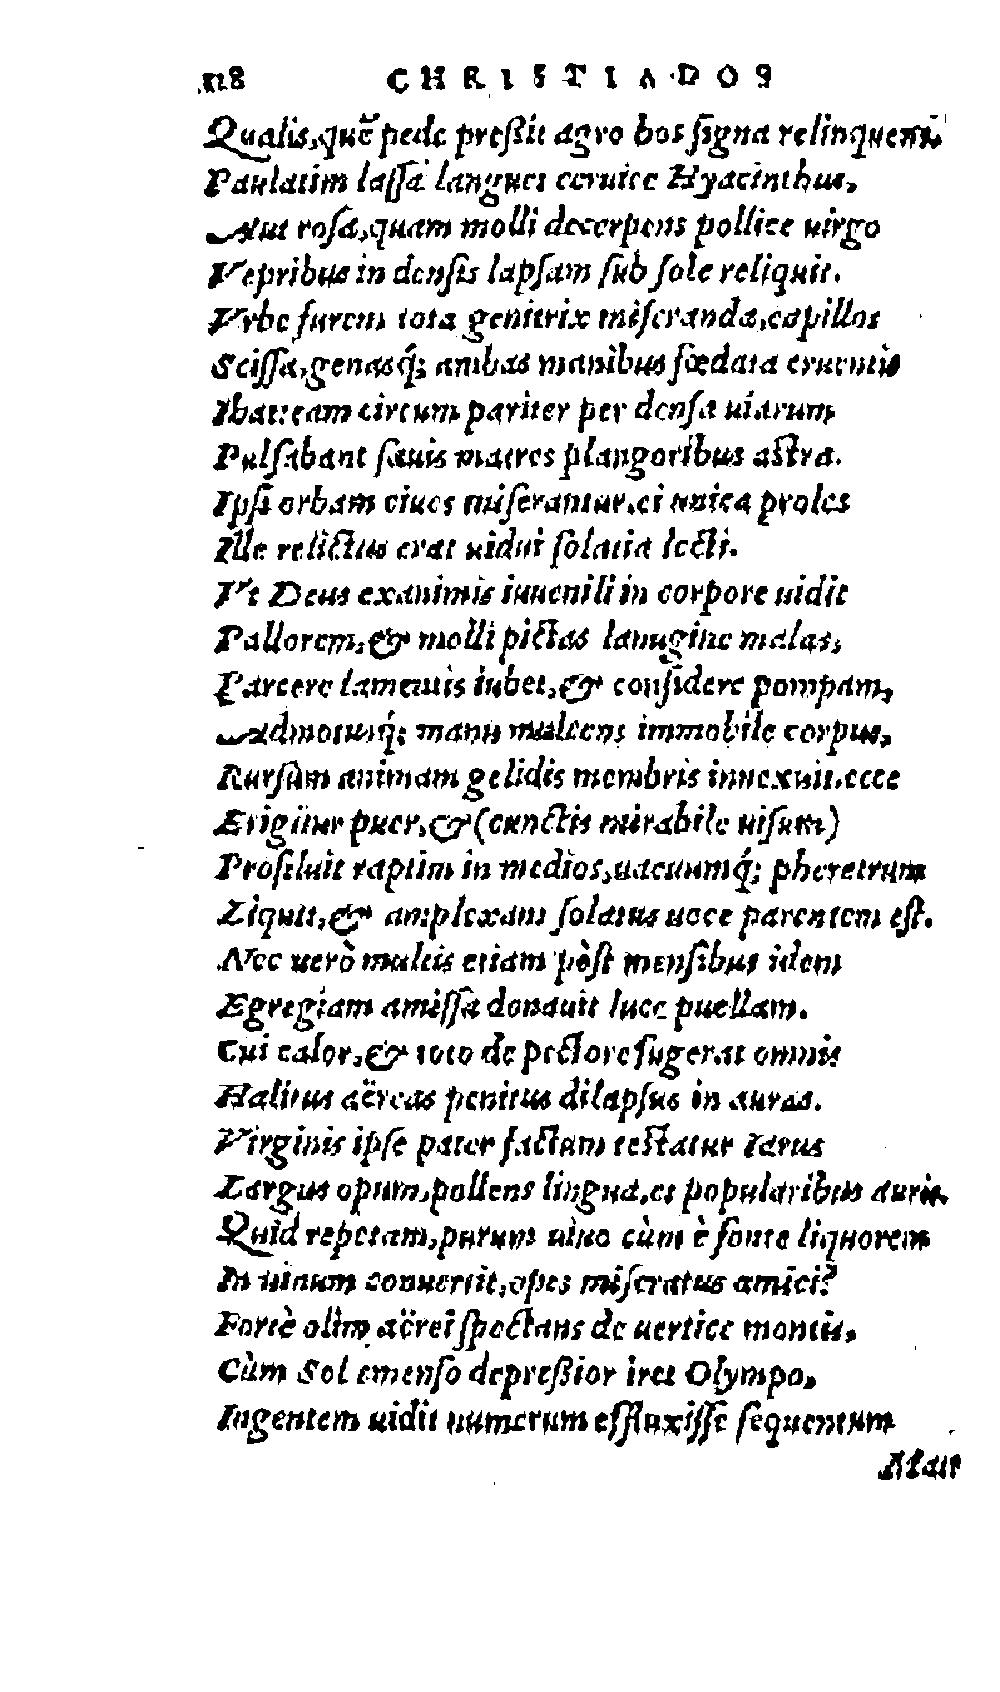 118 CHRISTIADOS
Qualis, quẽ pede preßit agro bos ſigna relinquens
Paulatim laſſa languet ceruice Hyacinthus,
Aut roſa, quam molli decerpens pollice uirgo
Vepribus in denſis lapſam ſub ſole reliquit.
Vrbe furens tota genitrix miſeranda, capillos
Sciſſa, genasq́; ambas manibus fœdata cruentis
Ibat: eam circum pariter per denſa uiarum
Pulſabant ſæuis matres plangoribus aſtra.
Ipſi orbam ciues miſerantur. ei unica proles
Ille relictus erat uidui ſolatia lecti.
Vt Deus exanimis iuuenili in corpore uidit
Pallorem, & molli pictas lanugine malas,
Parcere lamentis iubet, & conſidere pompam,
Admotaq́; manu mulcens immobile corpus,
Rurſum animam gelidis membris innexuit. ecce
Erigitur puer, & (cunctis mirabile uiſum)
Proſiluit raptim in medios, uacuumq́; pheretrum
Liquit, & amplexam ſolatus uoce parentem eſt.
Nec uerò multis etiam pòſt menſibus idem
Egregiam amiſſa donauit luce puellam.
Cui calor, & toto de pectore fugerat omnis
Halitus aëreas penitus dilapſus in auras.
Virginis ipſe pater factum teſtatur Iarus
Largus opum, pollens lingua, et popularibus auris.
Quid repetam, purum uiuo cùm è fonte liquorem
In uinum conuertit, opes miſeratus amici?
Fortè olim aërei ſpectans de uertice montis,
Cùm Sol emenſo depreßior iret Olympo,
Ingentem uidit numerum effluxiſſe ſequentum